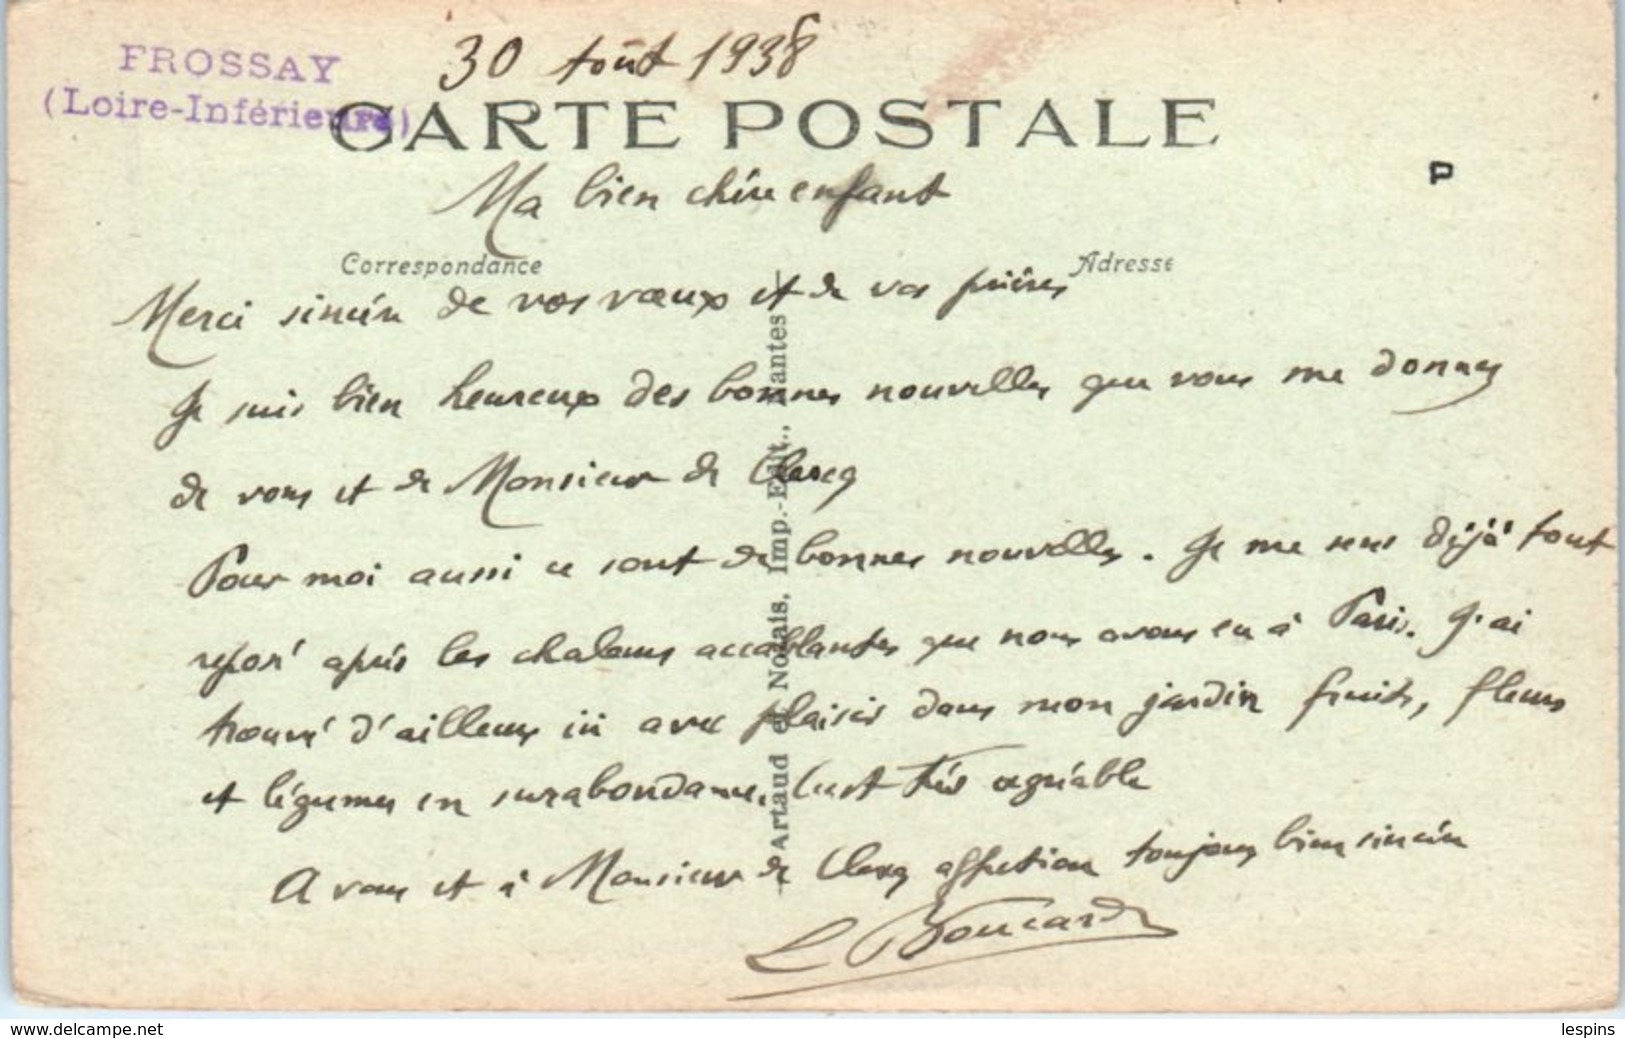 FROSSAY
(Loire-Inférieure)
30 Août 1938
CARTE POSTALE
P
Ma bien chère enfant
Correspondance
Adresse
Merci sincère de vos vœux et de vos prières
Je suis bien heureux des bonnes nouvelles que vous me donnez
de vous et de Monsieur de Clercq
Pour moi aussi ce sont de bonnes nouvelles. Je me sens déjà tout
reposé après les chaleurs accablantes que nous avons eu à Paris. J'ai
trouvé d'ailleurs ici avec plaisir dans mon jardin fruits, fleurs
et légumes en surabondance, c'est très agréable
A vous et à Monsieur de Clercq affection toujours bien sincère
L Boucard
Artaud et Nozais, Imp.-Edit., Nantes
www.delcampe.net
lespins